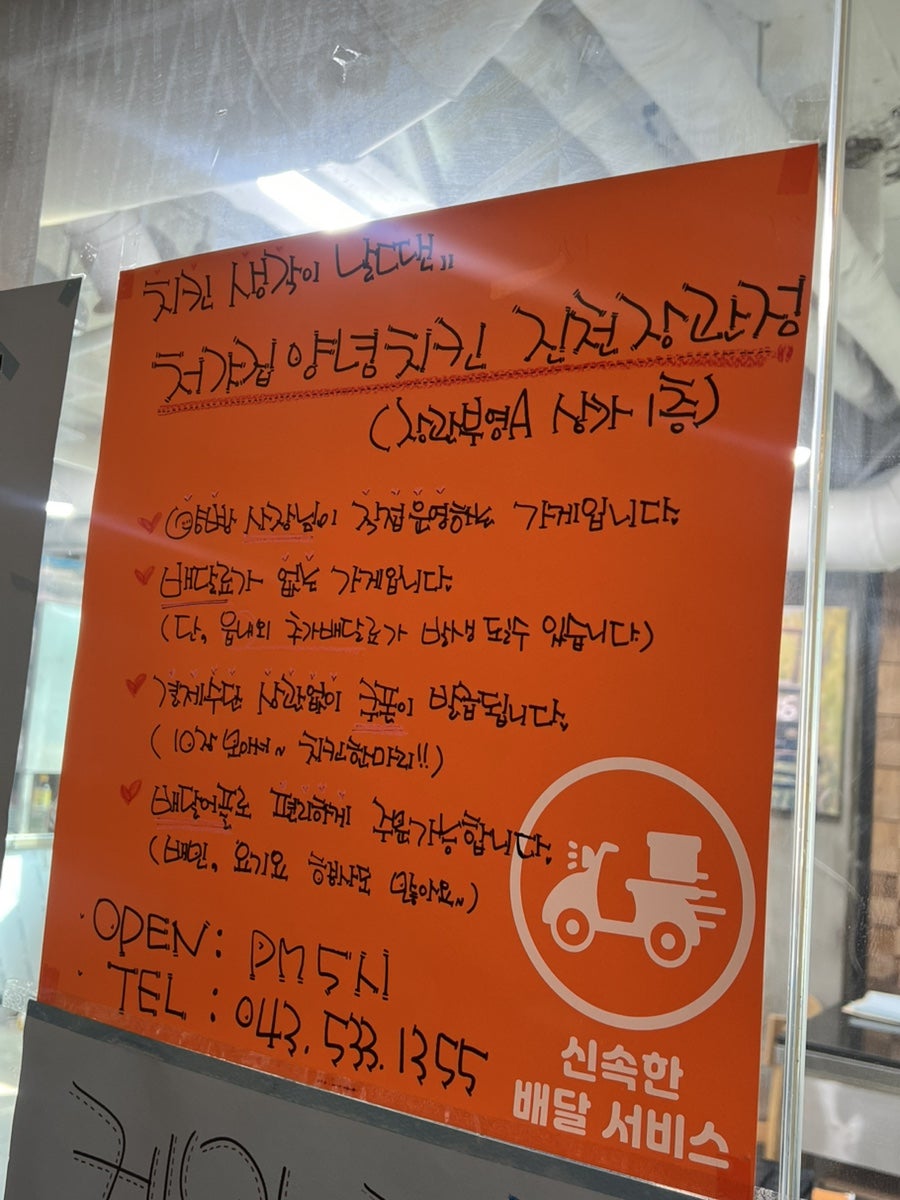 치킨 생각이 날 땐,,
처갓집양념치킨 진천장관점
(장관부영A 상가 1층)
사장님이 직접운영하는 가게입니다.
배달료가 없는 가게입니다.
(단, 읍내외 추가배달료가 발생 될수 있습니다)
결제수단 상관없이 쿠폰이 발급됩니다.
(10장 모으면~ 치킨한마리!!)
배달어플로 편리하게 주문가능합니다.
(배민, 요기요 행사도 많아요~)
OPEN : PM 5시
TEL : 043. 533. 1355
신속한
배달 서비스